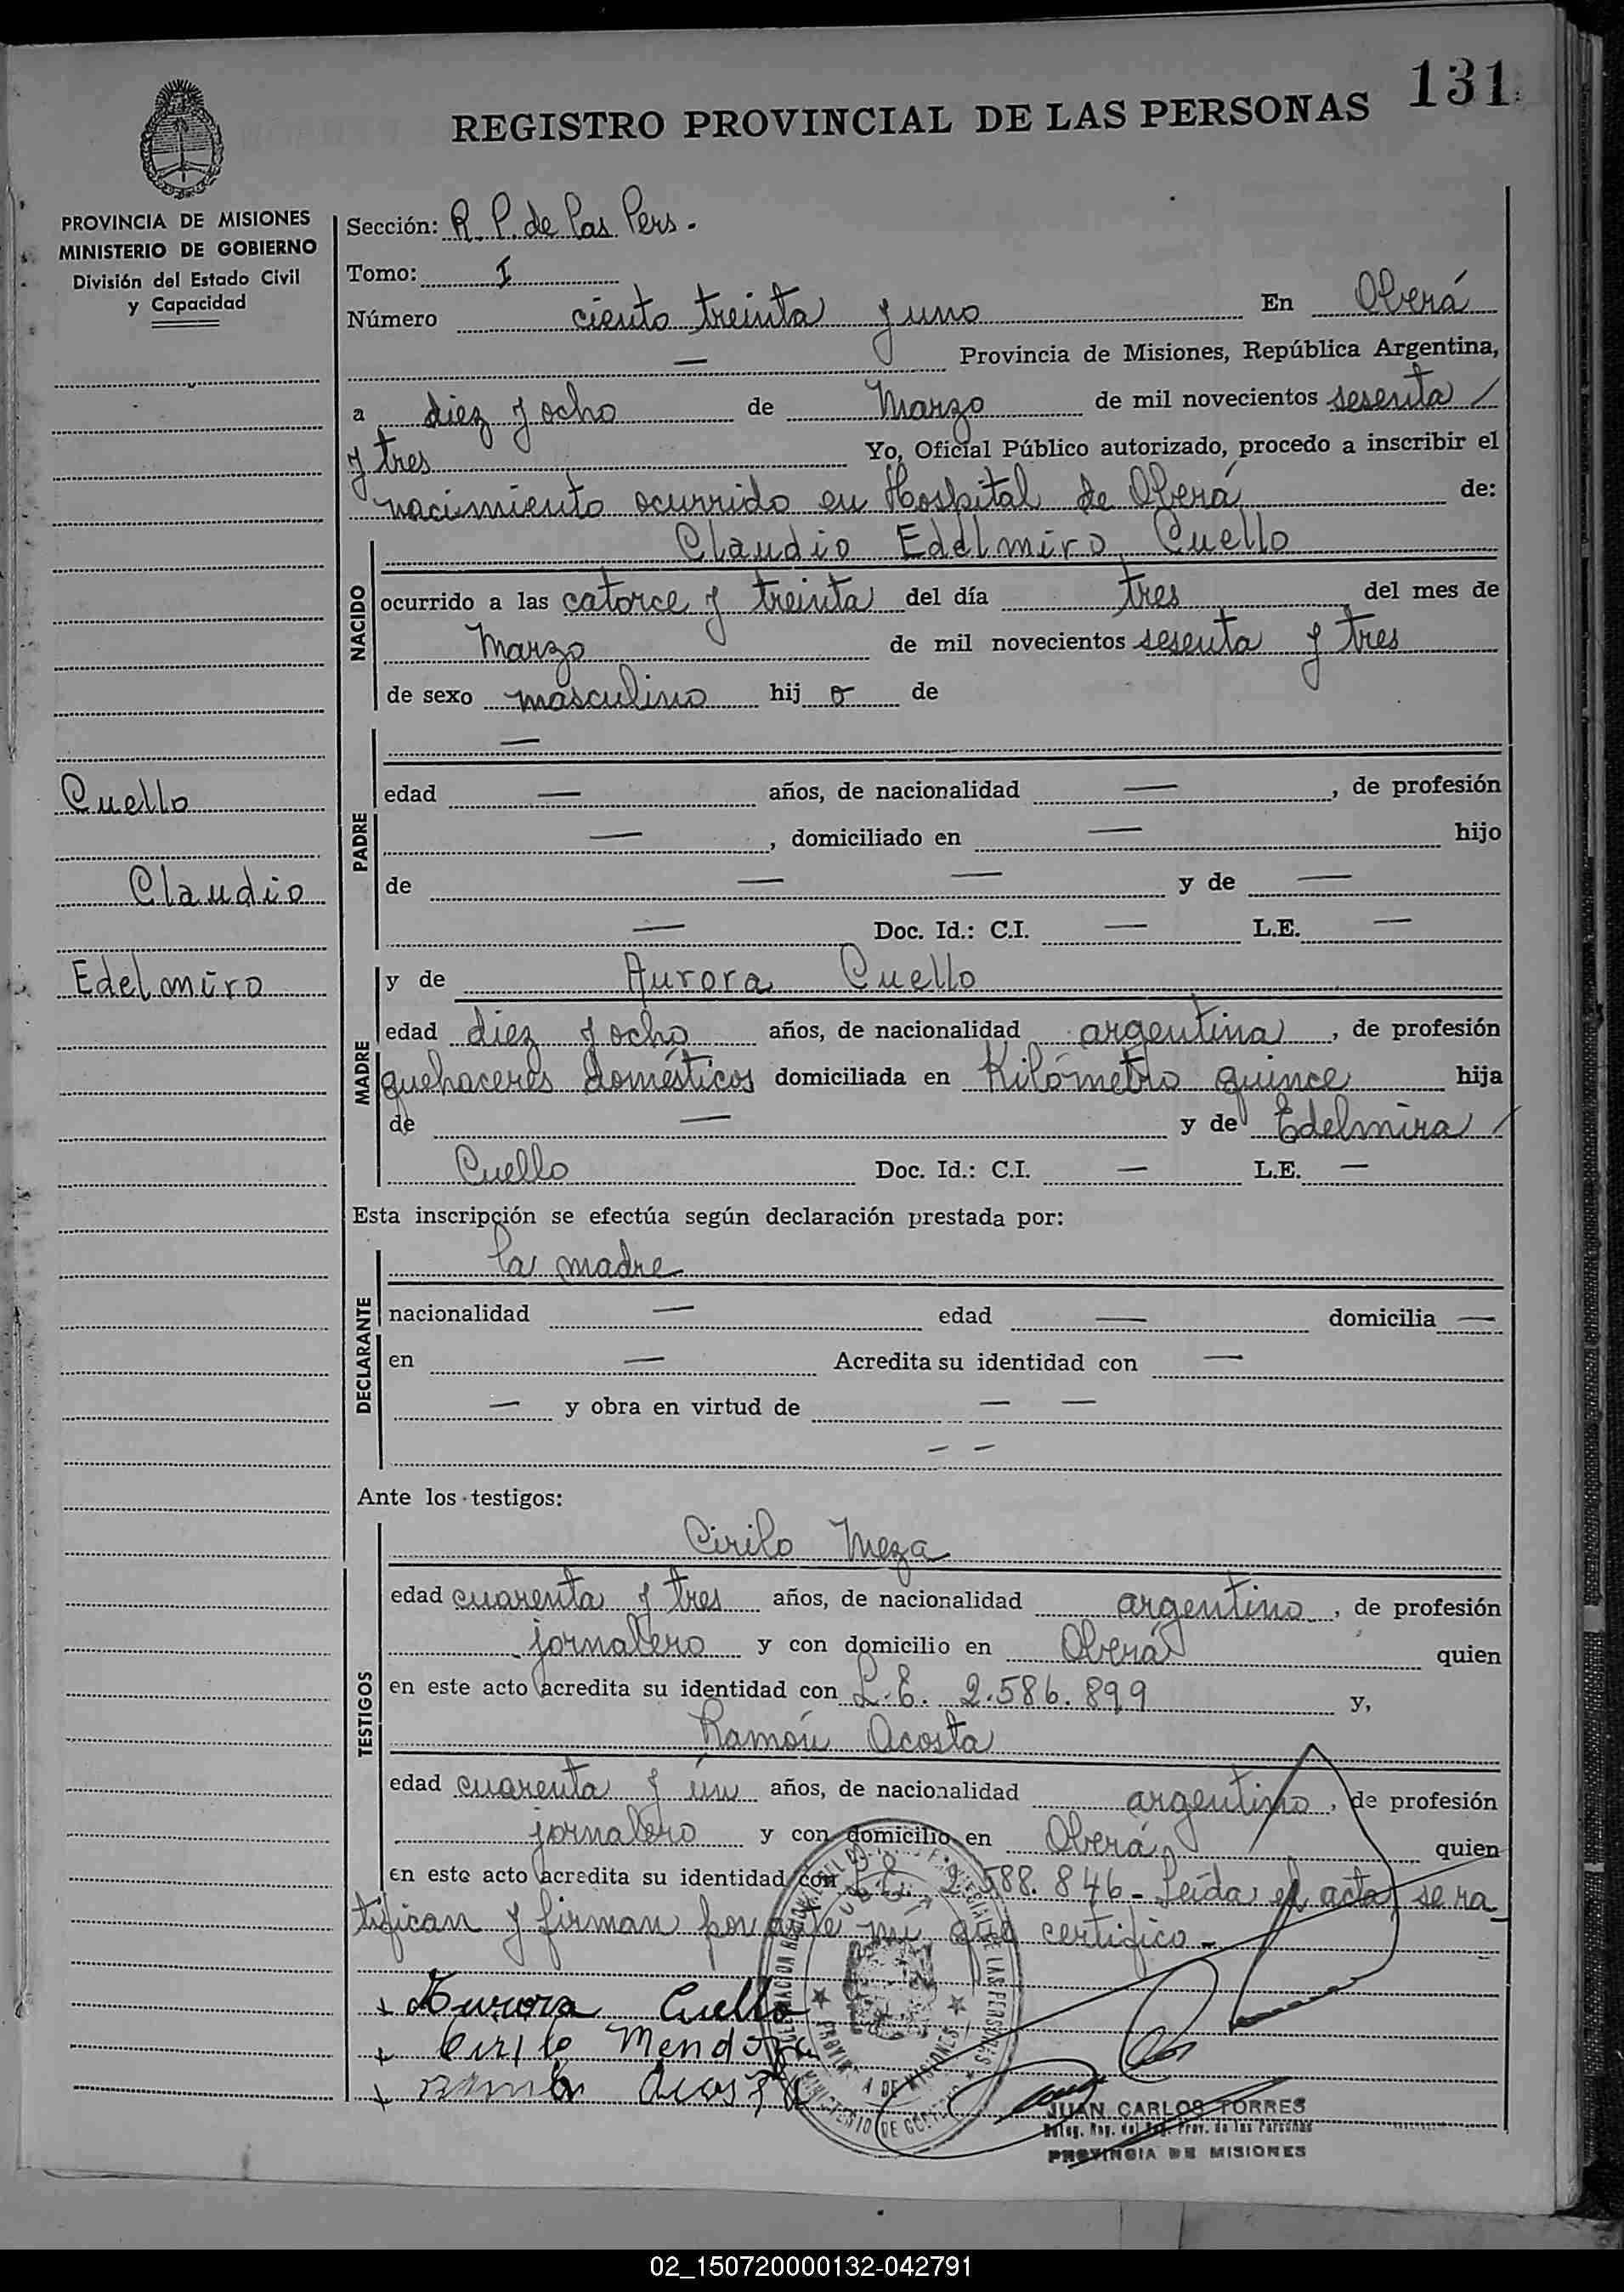 131
REGISTRO PROVINCIAL DE LAS PERSONAS
PROVINCIA DE MISIONES
MINISTERIO DE GOBIERNO
División del Estado Civil
y Capacidad
Sección: R. P. de las Pers.
Tomo: I
Número ciento treinta y uno En Oberá
— Provincia de Misiones, República Argentina,
a diez y ocho de Marzo de mil novecientos sesenta /
y tres Yo, Oficial Público autorizado, procedo a inscribir el
nacimiento ocurrido en Hospital de Oberá de:
NACIDO
Claudio Edelmiro Cuello
ocurrido a las catorce y treinta del día tres del mes de
Marzo de mil novecientos sesenta y tres
de sexo masculino hij o de
PADRE
—
edad — años, de nacionalidad —, de profesión
—, domiciliado en — hijo
de — — y de —
— Doc. Id.: C.I. — L.E. —
Cuello
Claudio
Edelmiro
MADRE
y de Aurora Cuello
edad diez y ocho años, de nacionalidad argentina, de profesión
quehaceres domésticos domiciliada en Kilómetro quince hija
de — y de Edelmira /
Cuello Doc. Id.: C.I. — L.E. —
Esta inscripción se efectúa según declaración prestada por:
DECLARANTE
la madre
nacionalidad — edad — domicilia —
en — Acredita su identidad con —
— y obra en virtud de — —
— —
Ante los testigos:
TESTIGOS
Cirilo Meza
edad cuarenta y tres años, de nacionalidad argentino, de profesión
jornalero y con domicilio en Oberá quien
en este acto acredita su identidad con L.E. 2.586.899 y,
Ramón Acosta
edad cuarenta y un años, de nacionalidad argentino, de profesión
jornalero y con domicilio en Oberá quien
en este acto acredita su identidad con L.E. 2.588.846 - Leída el acta, se ra_
tifican y firman por ante mi que certifico -
Aurora Cuello
Cirilo Mendoza
Ramón Acosta
PROVINCIA DE MISIONES
MINISTERIO DE GOBIERNO
JUAN CARLOS TORRES
Deleg. Reg. del Reg. Prov. de las Personas
PROVINCIA DE MISIONES
02_150720000132-042791